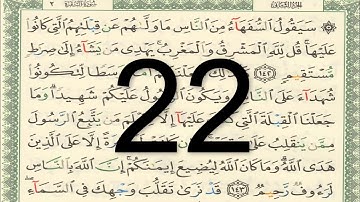 ۞ سَيَقُولُ ٱلسُّفَهَآءُ مِنَ ٱلنَّاسِ مَا وَلَّىٰهُمْ عَن قِبْلَتِهِمُ ٱلَّتِى كَانُوا۟
عَلَيْهَا قُل لِّلَّهِ ٱلْمَشْرِقُ وَٱلْمَغْرِبُ يَهْدِى مَن يَشَآءُ إِلَىٰ صِرَٰطٍ
مُّسْتَقِيمٍ ١٤٢ لِّتَكُونُوا۟
22
شُهَدَآءَ عَلَى وَيَكُونَ ٱلرَّسُولُ عَلَيْكُمْ شَهِيدًا وَمَا
جَعَلْنَا ٱلْقِبْلَةَ ٱلَّتِى مَن يَتَّبِعُ ٱلرَّسُولَ
مِمَّن يَنقَلِبُ عَلَىٰ إِلَّا عَلَى ٱلَّذِينَ
هَدَى ٱللَّهُ وَمَا كَانَ ٱللَّهُ لِيُضِيعَ إِيمَٰنَكُمْ إِنَّ ٱللَّهَ بِٱلنَّاسِ
لَرَءُوفٌ رَّحِيمٌ ١٤٣ قَدْ نَرَىٰ تَقَلُّبَ وَجْهِكَ فِى ٱلسَّمَآءِ